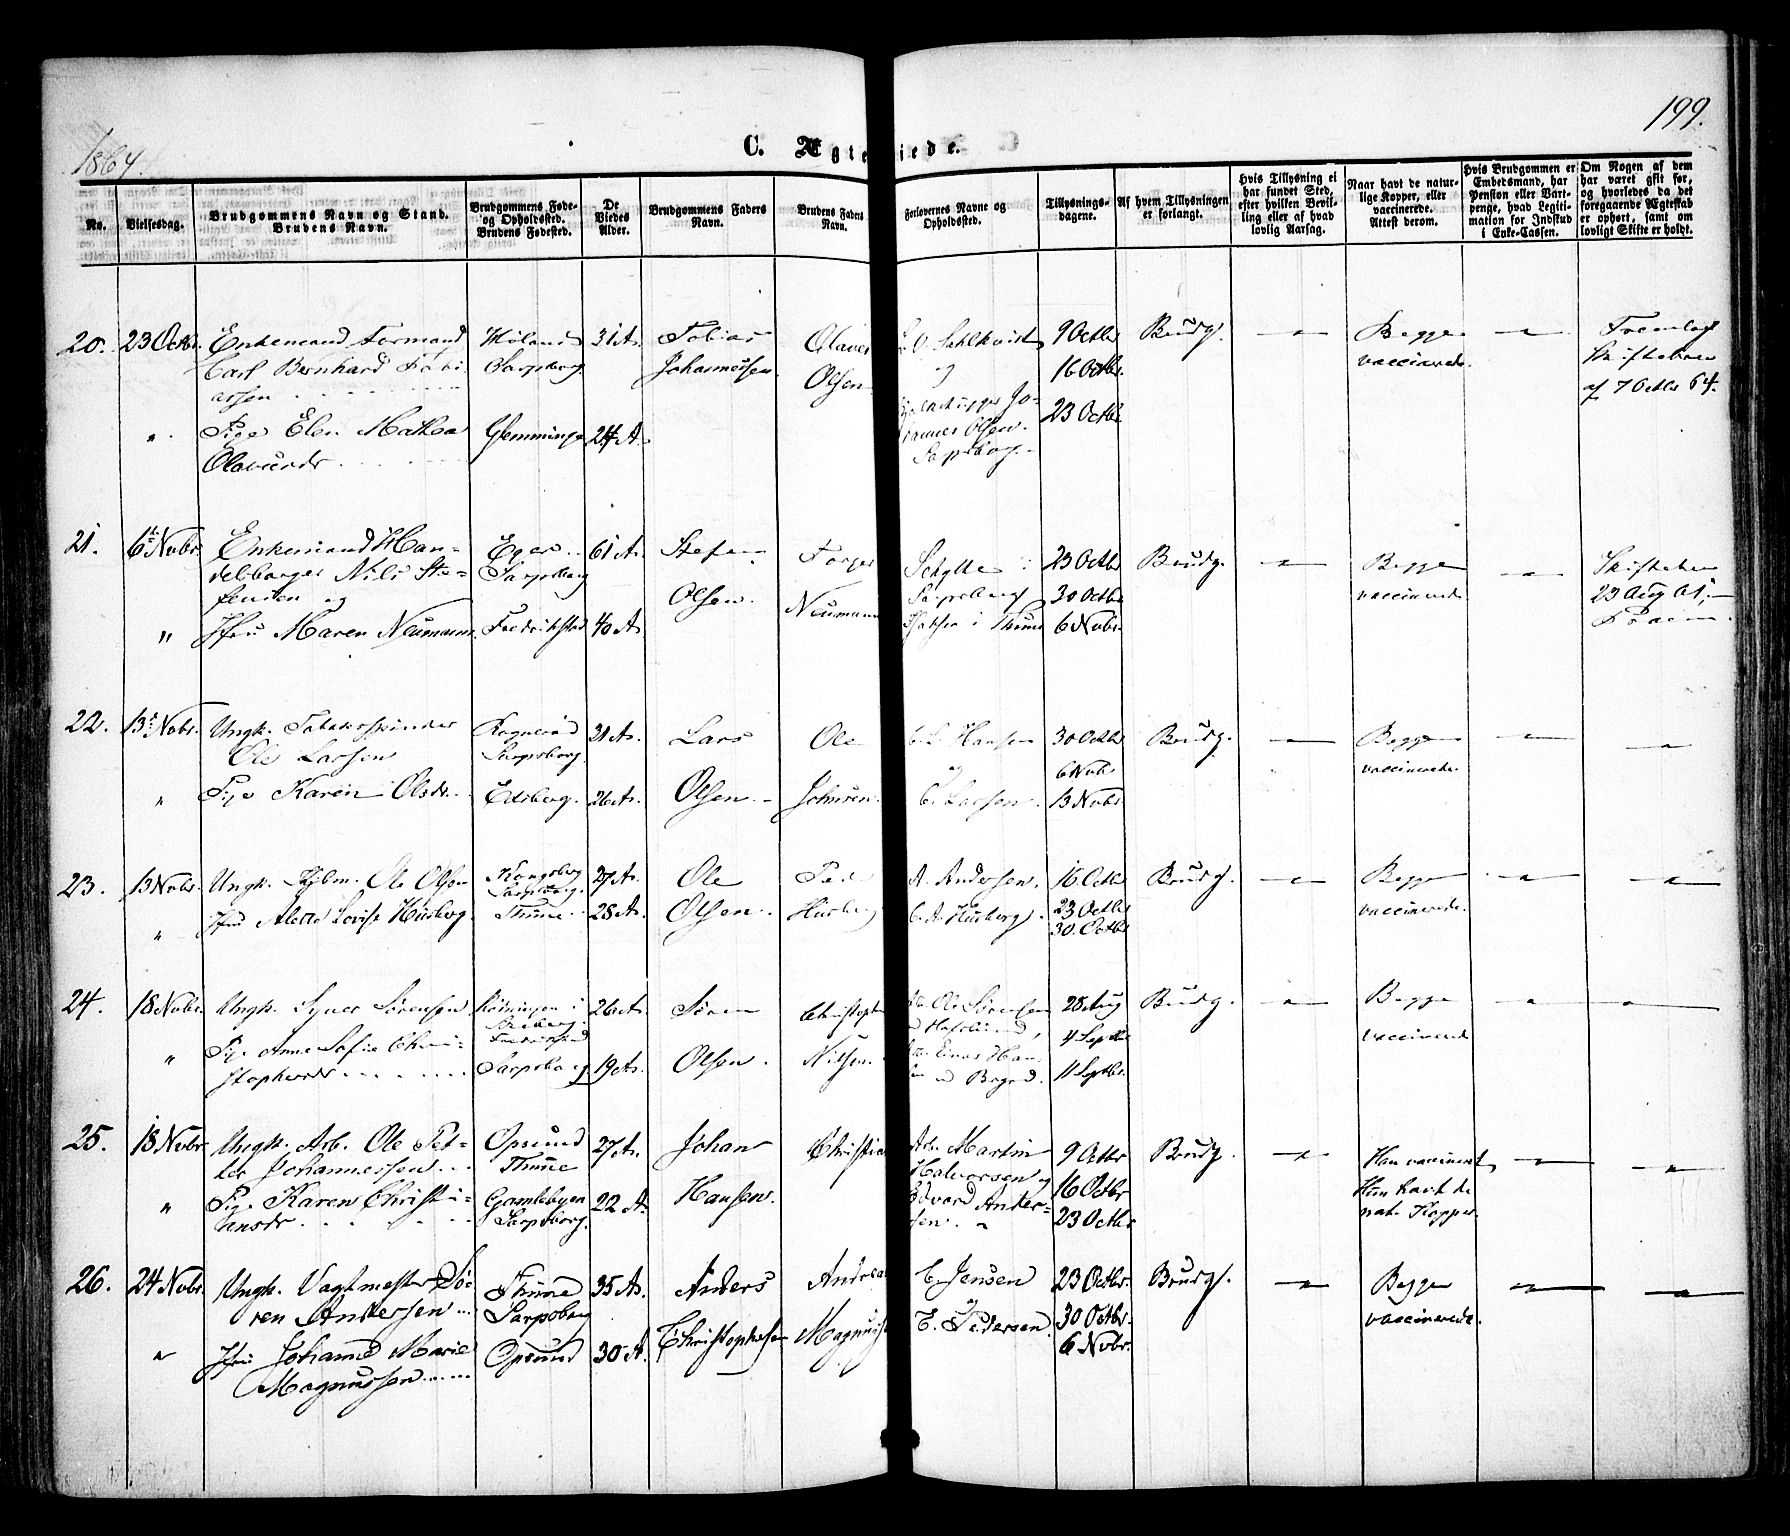 1864.
C. Ægteviede.
199.
No.
Vielsesdag.
Brudgommens Navn og Stand.
Brudens Navn.
Brudgommens Føde- og Opholdssted.
Brudens Fødested.
De Viedes Alder.
Brudgommens Faders Navn.
Brudens Faders Navn.
Forlovernes Navne og Opholdssted.
Tillysningsdagene.
Af hvem Tillysningen er forlangt.
Hvis Tillysning ei har fundet Sted, efter hvilken Bevilling eller af hvad lovlig Aarsag.
Naar havt de naturlige Kopper, eller vaccinerede. Attest derom.
Hvis Brudgommen er Embedsmand, har Pension eller Vartpenge, hvad Legitimation for Indskud i Enke-Cassen.
Om Nogen af dem har været gift før, og hvorledes da det foregaaende Ægteskab er ophørt, samt om lovligt Skifte er holdt.
20. 23 Octbr. Enkemand Formand Høland 31 A. Tobias Olaves L. O. Sahlkvist 9 Octbr Brudg. Begge Fremlagt
Carl Bernhard Tobi- Sarpsborg Johannessen. Olsen og 16 Octbr. vaccinerede. Skiftebrev
assen af 7 Octbr 64.
" Pige Elen Mathea Glemminge 24 A. Jo- 23 Octbr
Olavesdr. hannes Olsen.
Sarpsborg.
21. 6te Novbr. Enkemand Han- Eger 61 A. Stefen Torger Schytte i 23 Octbr Brudg. Begge Skiftebrev
delsborger Nils Ste- Sarpsborg Olsen. Neumann Sarpsborg 30 Octbr vaccinerede 23 Aug
fensen og
" Jfru Maren Neumann. Fredrikstad 40 A. i Thune 6 Novbr.
22. 13de Novbr. Ungk. Tobaksspinder 31 A. Lars Ole C. L. Hansen 30 Octbr Brudg. Begge
Ole Larsen Sarpsborg og 6 Novbr vaccinerede.
" Pige Karen Olsdr. Edsberg. 26 A. Olsen. Johnsen. C. Larsen. 13 Novbr
23. 13 Novbr. Ungk. Ole Olsen Kongsberg 37 A. Ole Peder A. Andersen. 16 Octbr Brudg. Begge
Sarpsborg.
" Jfru Alette Lovise Husberg Thune 28 A. Olsen. Husberg C. A. Husberg. 23 Octbr vaccinerede.
30. Octbr
24. 18 Novbr. Ungk. Syver Sørensen i 26 A. Søren Christopher Ole Sørensen 28 Aug Brudg. Begge
Hafslund, 4 Septbr
" Pige Anne Sofie Chri- vaccinerede
stophersdr. Sarpsborg 19 A. Olsen. Nilsen. 11 Septbr.
25. 18 Novbr Ungk. Arb. Ole Pet- Opsund 27 A. Johan Christian Arb. Martin 9 Octbr Brudg. Han vaccineret
ter Johannessen Thune Halvorsen og
" Pige Karen Christi- Gamlebyen 22 A. Hansen. Edvard Ander- 16 Octbr Hun havt de
ansdr. Sarpsborg. sen. 23 Octbr nat. Kopper.
26. 24 Novbr. Ungk. Vagtmester Sø- Thune 35 A. Anders Andreas C. Jensen 23 Octbr. Brudg. Begge
ren Andersen Sarpsborg og 30 Octbr. vaccinerede.
" Jfru Johanne Marie Opsund 30 A. Christophersen Magnussen E. Pedersen. 6 Novbr.
Magnussen